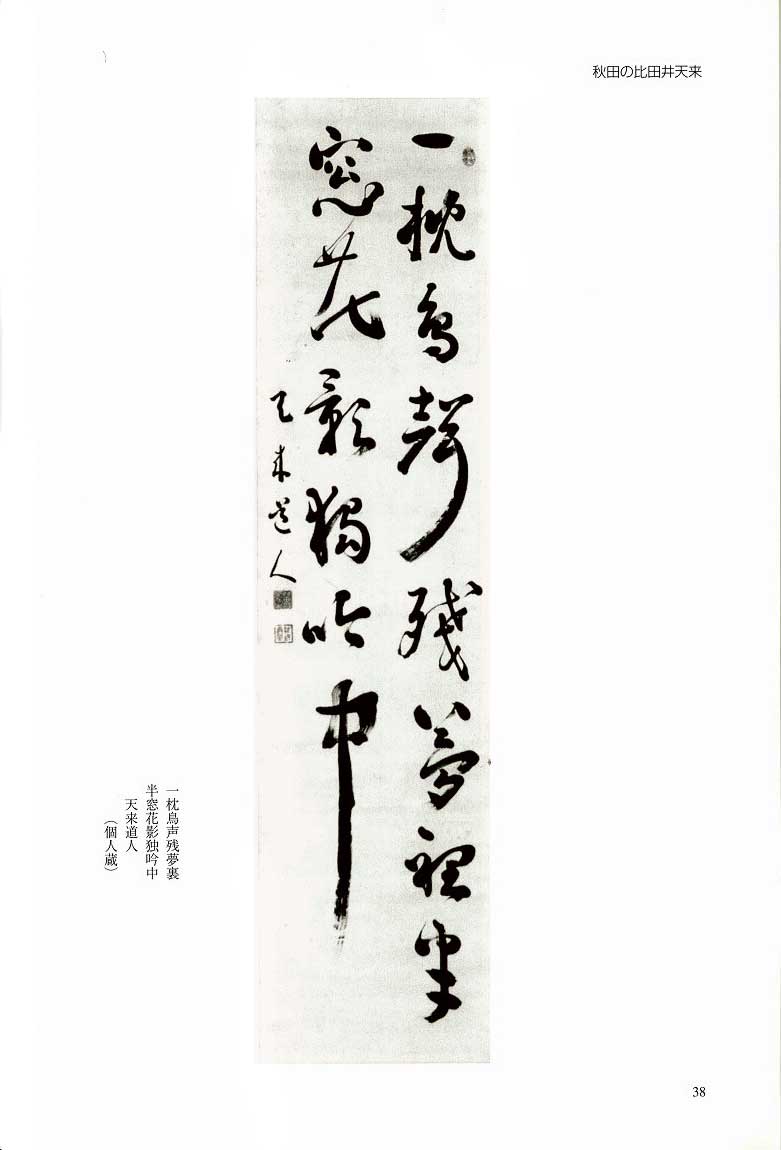 秋田の比田井天来
一枕鳥聲残夢裡半
窓花影獨吟中
天来道人
一枕鳥声残夢裏
半窓花影独吟中
天来道人
（個人蔵）
38